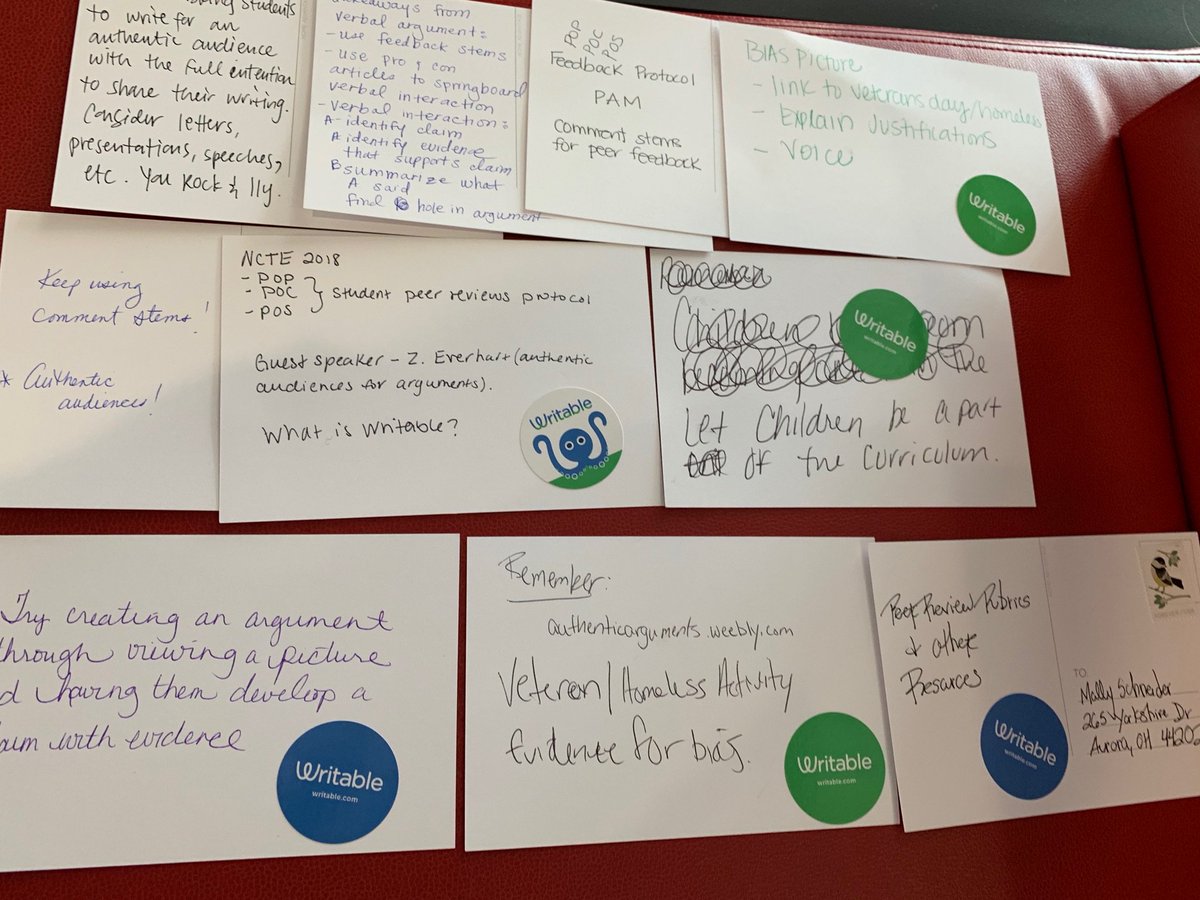 students
to write for an
authentic audience
with the full intention
to share their writing.
Consider letters,
presentations, speeches,
etc. You Rock & Ily.
takeaways from
verbal argument:
- use feedback stems
- use pro & con
articles to springboard
verbal interaction
- Verbal interaction:
A - identify claim
A identify evidence
that supports claim
B summarize what
A said
find hole in argument
POP
POC
POS
Feedback Protocol
PAM
Comment stems
for peer feedback
BIAS Picture
- link to veterans day/homeless
- Explain Justifications
- Voice
Writable
writable.com
Keep using
comment stems!
* Authentic
audiences!
NCTE 2018
- POP
- POC } student peer reviews protocol
- POS
Guest speaker - Z. Everhart (authentic
audiences for arguments).
What is writable?
Writable
Children
the
Writable
writable.com
Let Children be a part
of the Curriculum.
Try creating an argument
through viewing a picture
having them develop a
with evidence
Writable
writable.com
Remember:
authenticarguments.weebly.com
Veteran/Homeless Activity
Evidence for bias.
Writable
writable.com
Peer Review Rubrics
& other
Resources
Writable
writable.com
TO:
Mally Schneider
265 Yorkshire Dr
Aurora, OH 44202